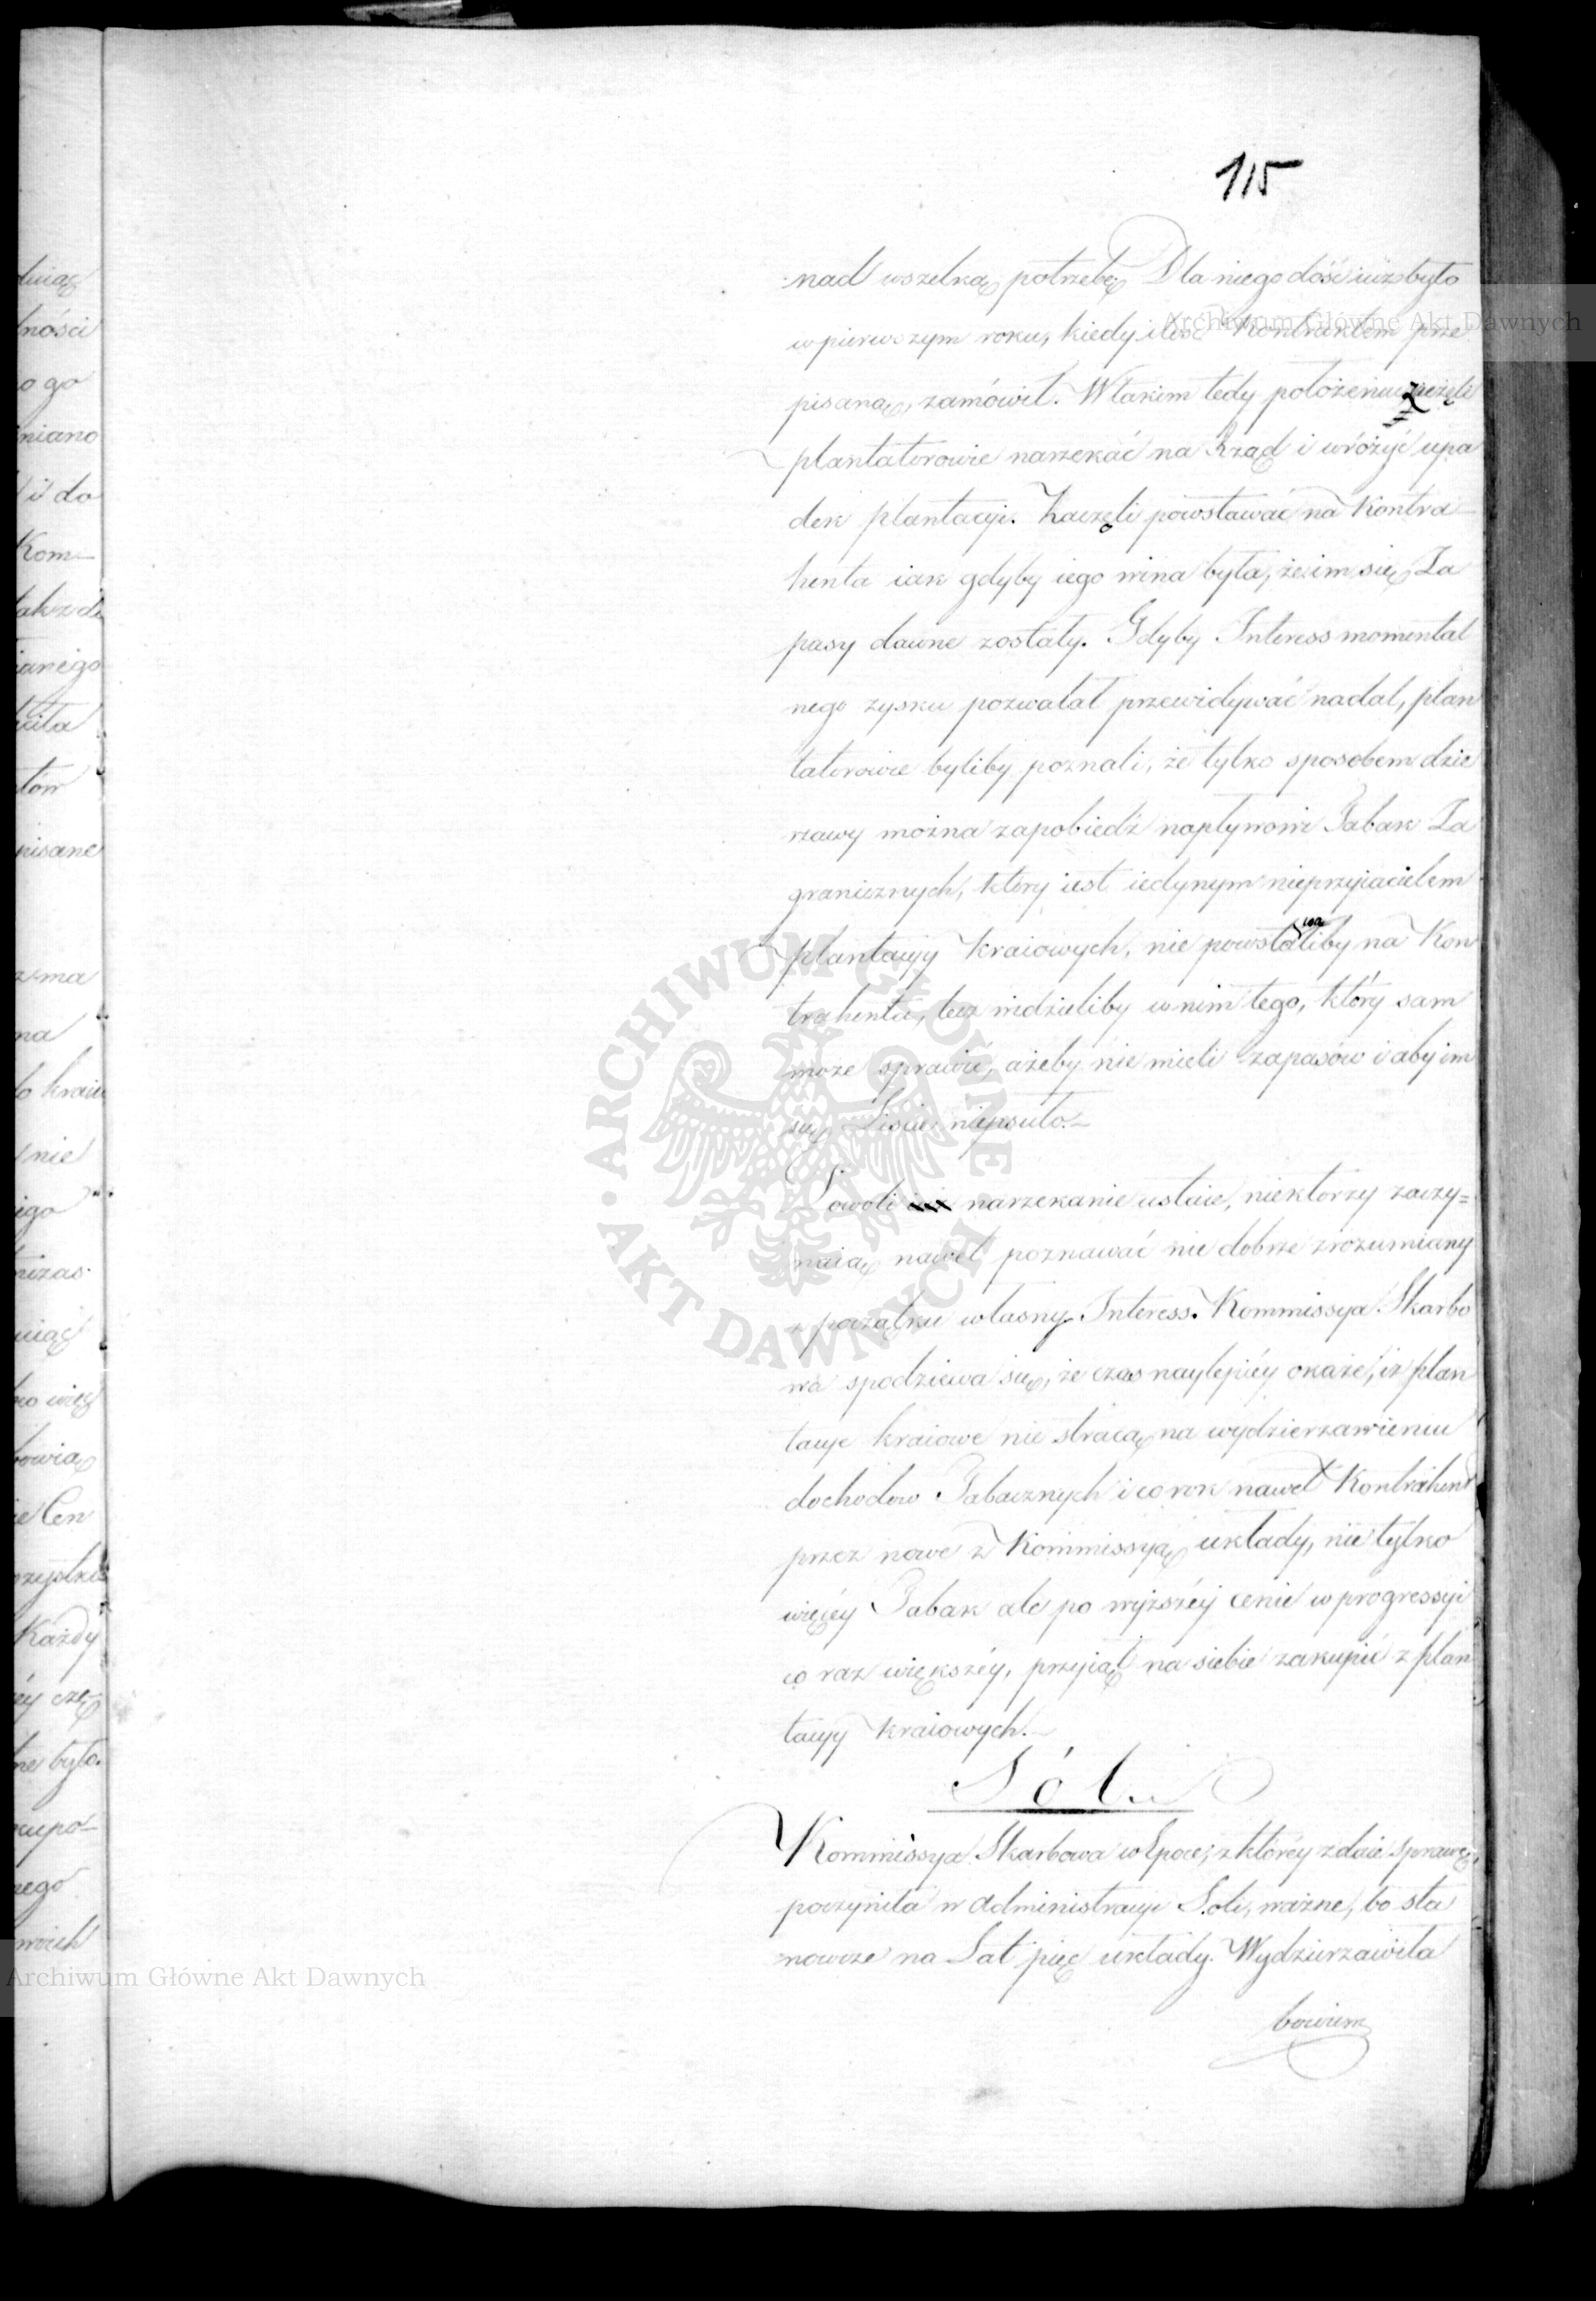 115
nad wszelką potrzebę. Dla niego dość iuż było
w pierwszym roku, kiedy ilość Kontraktem prze
pisaną, zamówił. W takim tedy położeniu zaczęli
plantatorowie narzekać na Rząd i wróżyć upa
dek plantacyi. Zaczęli powstawać na Kontra
henta iak gdyby iego wina była, że im się Za
pasy dawne zostały. Gdyby Interess momental
nego zysku pozwalał przewidywać nadal, plan
tatorowie byliby poznali, że tylko sposobem dzie
rzawy można zapobiedz napływowi Tabak Za
granicznych, który iest iedynym nieprzyiacielem
plantacyy kraiowych, nie powstawaliby na Kon
trahenta, lecz widzieliby w nim tego, który sam
może sprawić, ażeby nie mieli zapasów i aby im
się Liście niepsuło.
Powoli narzekanie ustaie, niektórzy zaczy=
naią nawet poznawać nie dobrze zrozumiany
z początku własny Interess. Kommissya Skarbo
wa spodziewa się, że czas naylepiéy okaże, iż plan
tacye kraiowe nie stracą na wydzierzawieniu
dochodow Tabacznych i co rok nawet Kontrahent
przez nowe z Kommissyą układy, nie tylko
więcéy Tabak ale po wyższéy cenie w progressyi
co raz większéy, przyiął na siebie zakupić z plan
tacyy kraiowych.
Sól.
Kommissya Skarbowa w Epoce, z któréy zdaie sprawę,
poczyniła w Administracyi Soli, ważne, bo sta
nowcze na Lat pięć układy. Wydzierzawiła
bowiem
Archiwum Główne Akt Dawnych
ARCHIWUM GŁÓWNE AKT DAWNYCH
Archiwum Główne Akt Dawnych